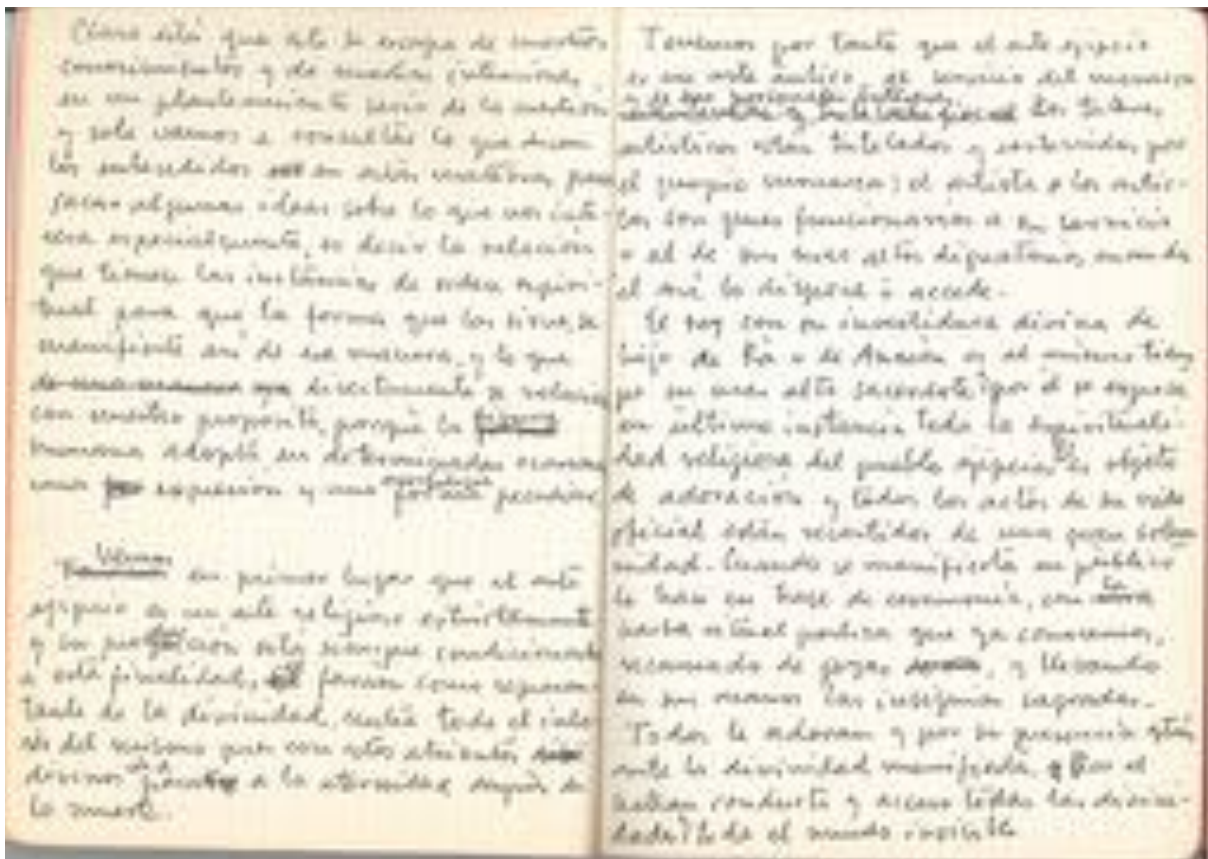 Claro está que esto se escapa de nuestros
conocimientos y de nuestras intenciones,
en un planteamiento serio de la cuestión
y solo vamos a consultar lo que dicen
los entendidos en estas materias para
sacar algunas ideas sobre lo que nos inte-
resa especialmente, es decir la relación
que tienen las instancias de orden espiri-
tual para que la forma que los sirve, se
manifieste así de esa manera, y lo que
directamente se relaciona
con nuestro proposito, porque la figura
humana adoptó en determinadas ocasiones
una expresión y una peculiar
Vemos en primer lugar que el arte
egipcio es un arte religioso estrictamente
y su está siempre condicionada
a esta finalidad, el faraon como represen-
tante de la divinidad, centra todo el inte-
rés del mismo pues con estos atributos
divinos a la eternidad despues de
la muerte.
Tenemos por tanto que el arte egipcio
es un arte aulico, al servicio del monarca
y de los Los talleres
artisticos estan tutelados y sostenidos por
el propio monarca; el artista o los artis-
tas son pues funcionarios a su servicio
o al de sus mas altos dignatarios, cuando
el asi lo dispone o accede.
El rey con su investidura divina de
hijo de Ra o de Amón es al mismo tiem-
po su mas alto sacerdote, por él se expresa
en ultima instancia toda la espirituali-
dad religiosa del pueblo egipcio, es objeto
de adoración y todos los actos de su vida
oficial están revestidos de una gran solem-
nidad. Cuando se manifiesta en público
lo hace en traje de ceremonia, con la
barba ritual postiza que ya conocemos,
recamado de joyas, y llevando
en sus manos las insignias sagradas.
Todos le adoran y por su presencia están
ante la divinidad manifiesta, por el
conducto y acceso todas las divini-
dades, todo el mundo invisible